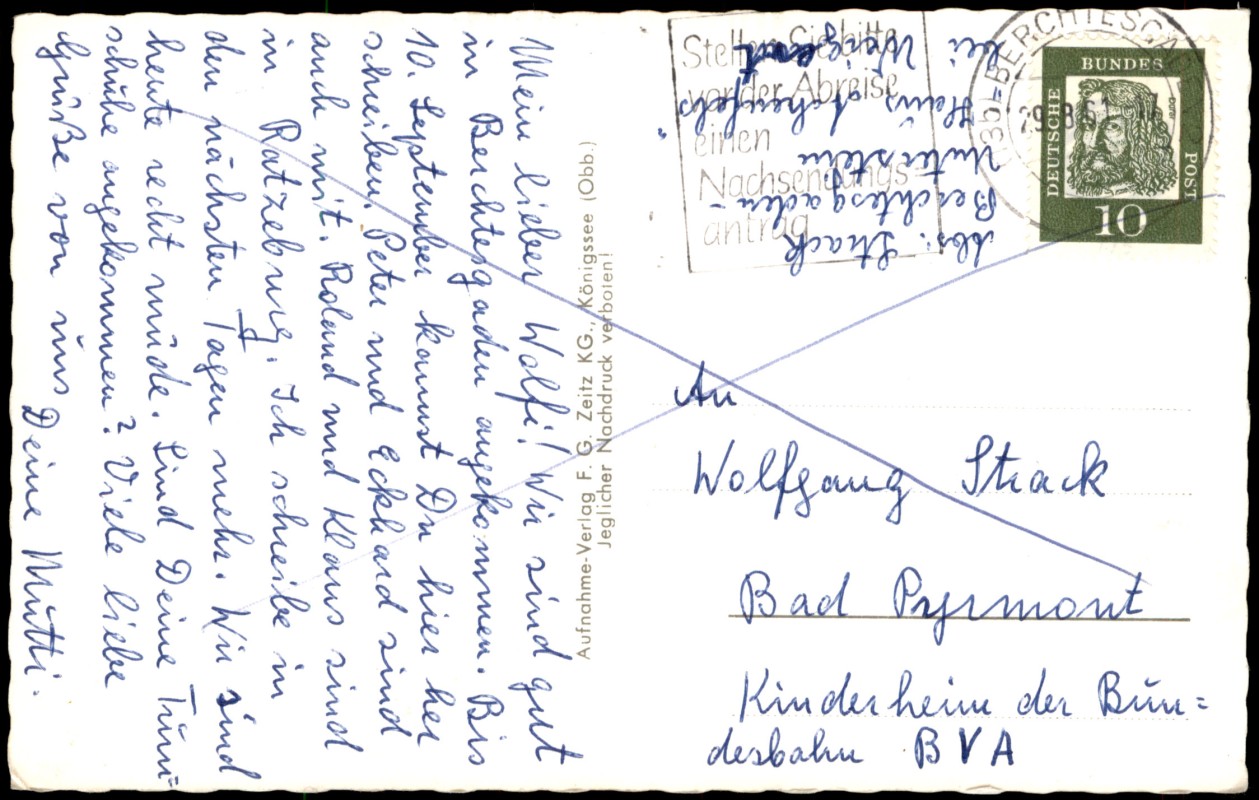 Mein lieber Wolfi! Wir sind gut
in Berchtesgaden angekommen. Bis
10. September kannst Du hier her
schreiben. Peter und Eckhard sind
auch mit. Roland und Klaus sind
in Ratzeburg. Ich schreibe in
den nächsten Tagen mehr. Wir sind
heute recht müde. Sind Deine Turn=
schuhe angekommen? Viele liebe
Grüße von uns
Deine Mutti.
Aufnahme-Verlag F. G. Zeitz KG., Königssee (Obb.)
Jeglicher Nachdruck verboten!
Stellen Sie bitte
vor der Abreise
einen
Nachsendungs-
antrag
BERCHTESGADEN
DEUTSCHE
BUNDES
POST
10
Abs: Strack
Berchtesgaden-
Unterstein
Haus Achenfels
bei
An
Wolfgang Strack
Bad Pyrmont
Kinderheim der Bun=
desbahn BVA